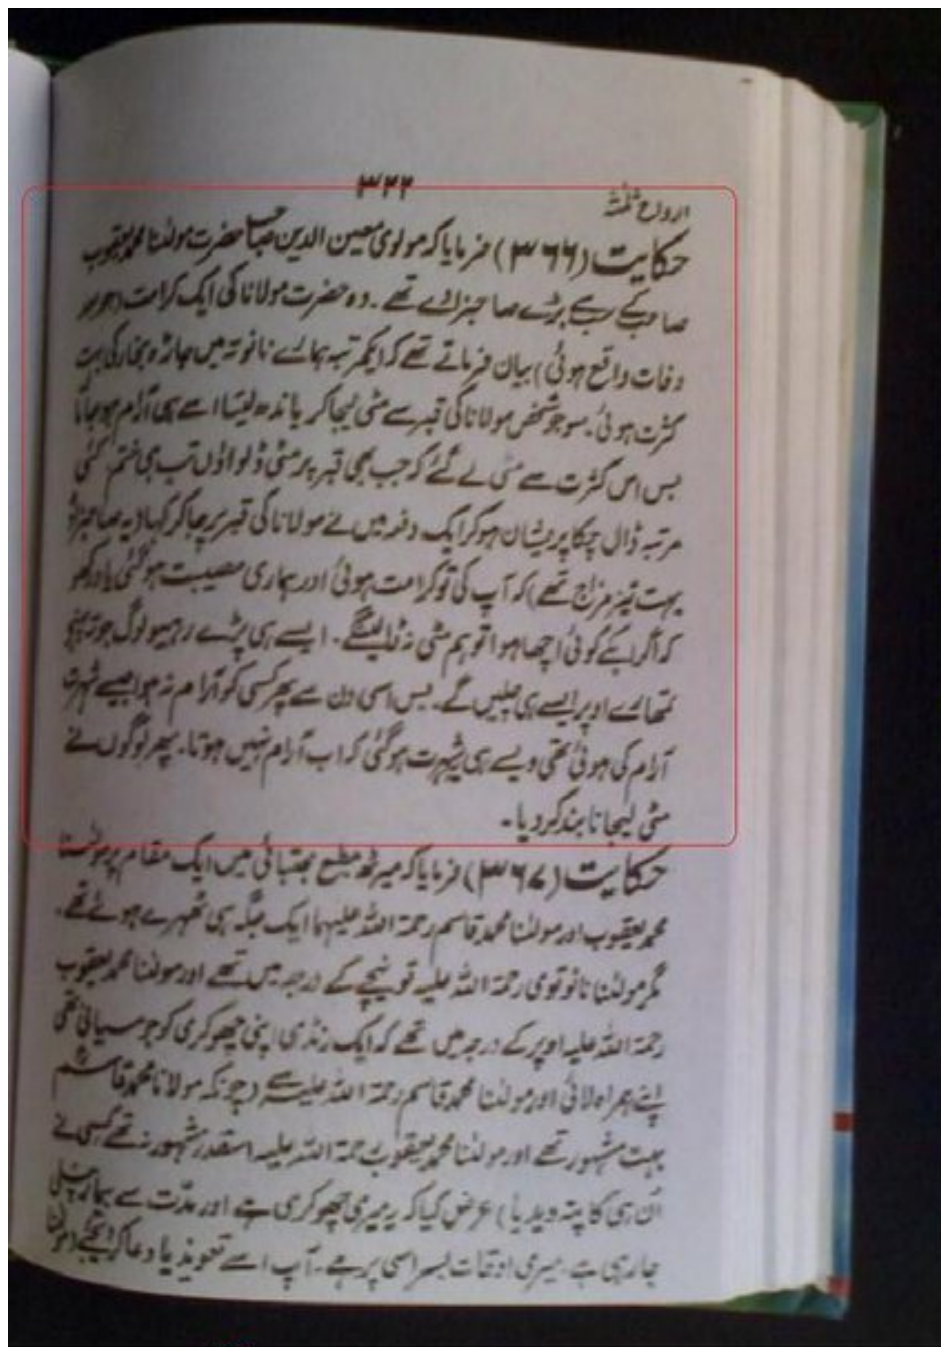 ۳۲۲
ارواح ثلثہ
حکایت (۳۶۶) فرمایا کہ مولوی معین الدین صاحب حضرت مولٰنا محمد یعقوب
صاحب کے سب سے بڑے صاحبزادے تھے۔ وہ حضرت مولانا کی ایک کرامت (جو بعد
وفات واقع ہوئی) بیان فرماتے تھے کہ ایکمرتبہ ہمارے نانوتہ میں جاڑہ بخار کی بہت
کثرت ہوئی۔ سو جو شخص مولانا کی قبر سے مٹی لیجا کر باندھ لیتا اسے ہی آرام ہو جاتا
بس اس کثرت سے مٹی لے گئے کہ جب بھی قبر پر مٹی ڈلواؤں تب ہی ختم۔ کئی
مرتبہ ڈال چکا پریشان ہو کر ایک دفعہ میں نے مولانا کی قبر پر جا کر کہا (یہ صاحبزادے
بہت تیز مزاج تھے) کہ آپ کی تو کرامت ہوئی اور ہماری مصیبت ہو گئی یاد رکھو
کہ اگر ابکے کوئی اچھا ہوا تو ہم مٹی نہ ڈالینگے۔ ایسے ہی پڑے رہیو لوگ جوتہ پہنے
تمھارے اوپر ایسے ہی چلیں گے۔ بس اسی دن سے پھر کسی کو آرام نہ ہوا جیسے شہرت
آرام کی ہوئی تھی ویسے ہی یہ شہرت ہو گئی کہ اب آرام نہیں ہوتا۔ پھر لوگوں نے
مٹی لیجانا بند کر دیا۔
حکایت (۳۶۷) فرمایا کہ میرٹھ مطبع مجتبائی میں ایک مقام پر مولٰنا
محمد یعقوب اور مولٰنا محمد قاسم رحمۃ اللہ علیہما ایک جگہ ہی ٹھہرے ہوئے تھے۔
مگر مولٰنا نانوتوی رحمۃ اللہ علیہ تو نیچے کے درجہ میں تھے اور مولٰنا محمد یعقوب
رحمۃ اللہ علیہ اوپر کے درجہ میں تھے کہ ایک رنڈی اپنی چھوکری کو جو سیانی تھی
اپنے ہمراہ لائی اور مولٰنا محمد قاسم رحمۃ اللہ علیہ سے (چونکہ مولانا محمد قاسم
بہت مشہور تھے اور مولٰنا محمد یعقوب رحمۃ اللہ علیہ اسقدر مشہور نہ تھے کسی نے
ان ہی کا پتہ دیدیا) عرض کیا کہ یہ میری چھوکری ہے اور مدت سے بیمار چلی
جا رہی ہے۔ میری اوقات بسر اسی پر ہے۔ آپ اسے تعویذ یا دعا کر دیجئے